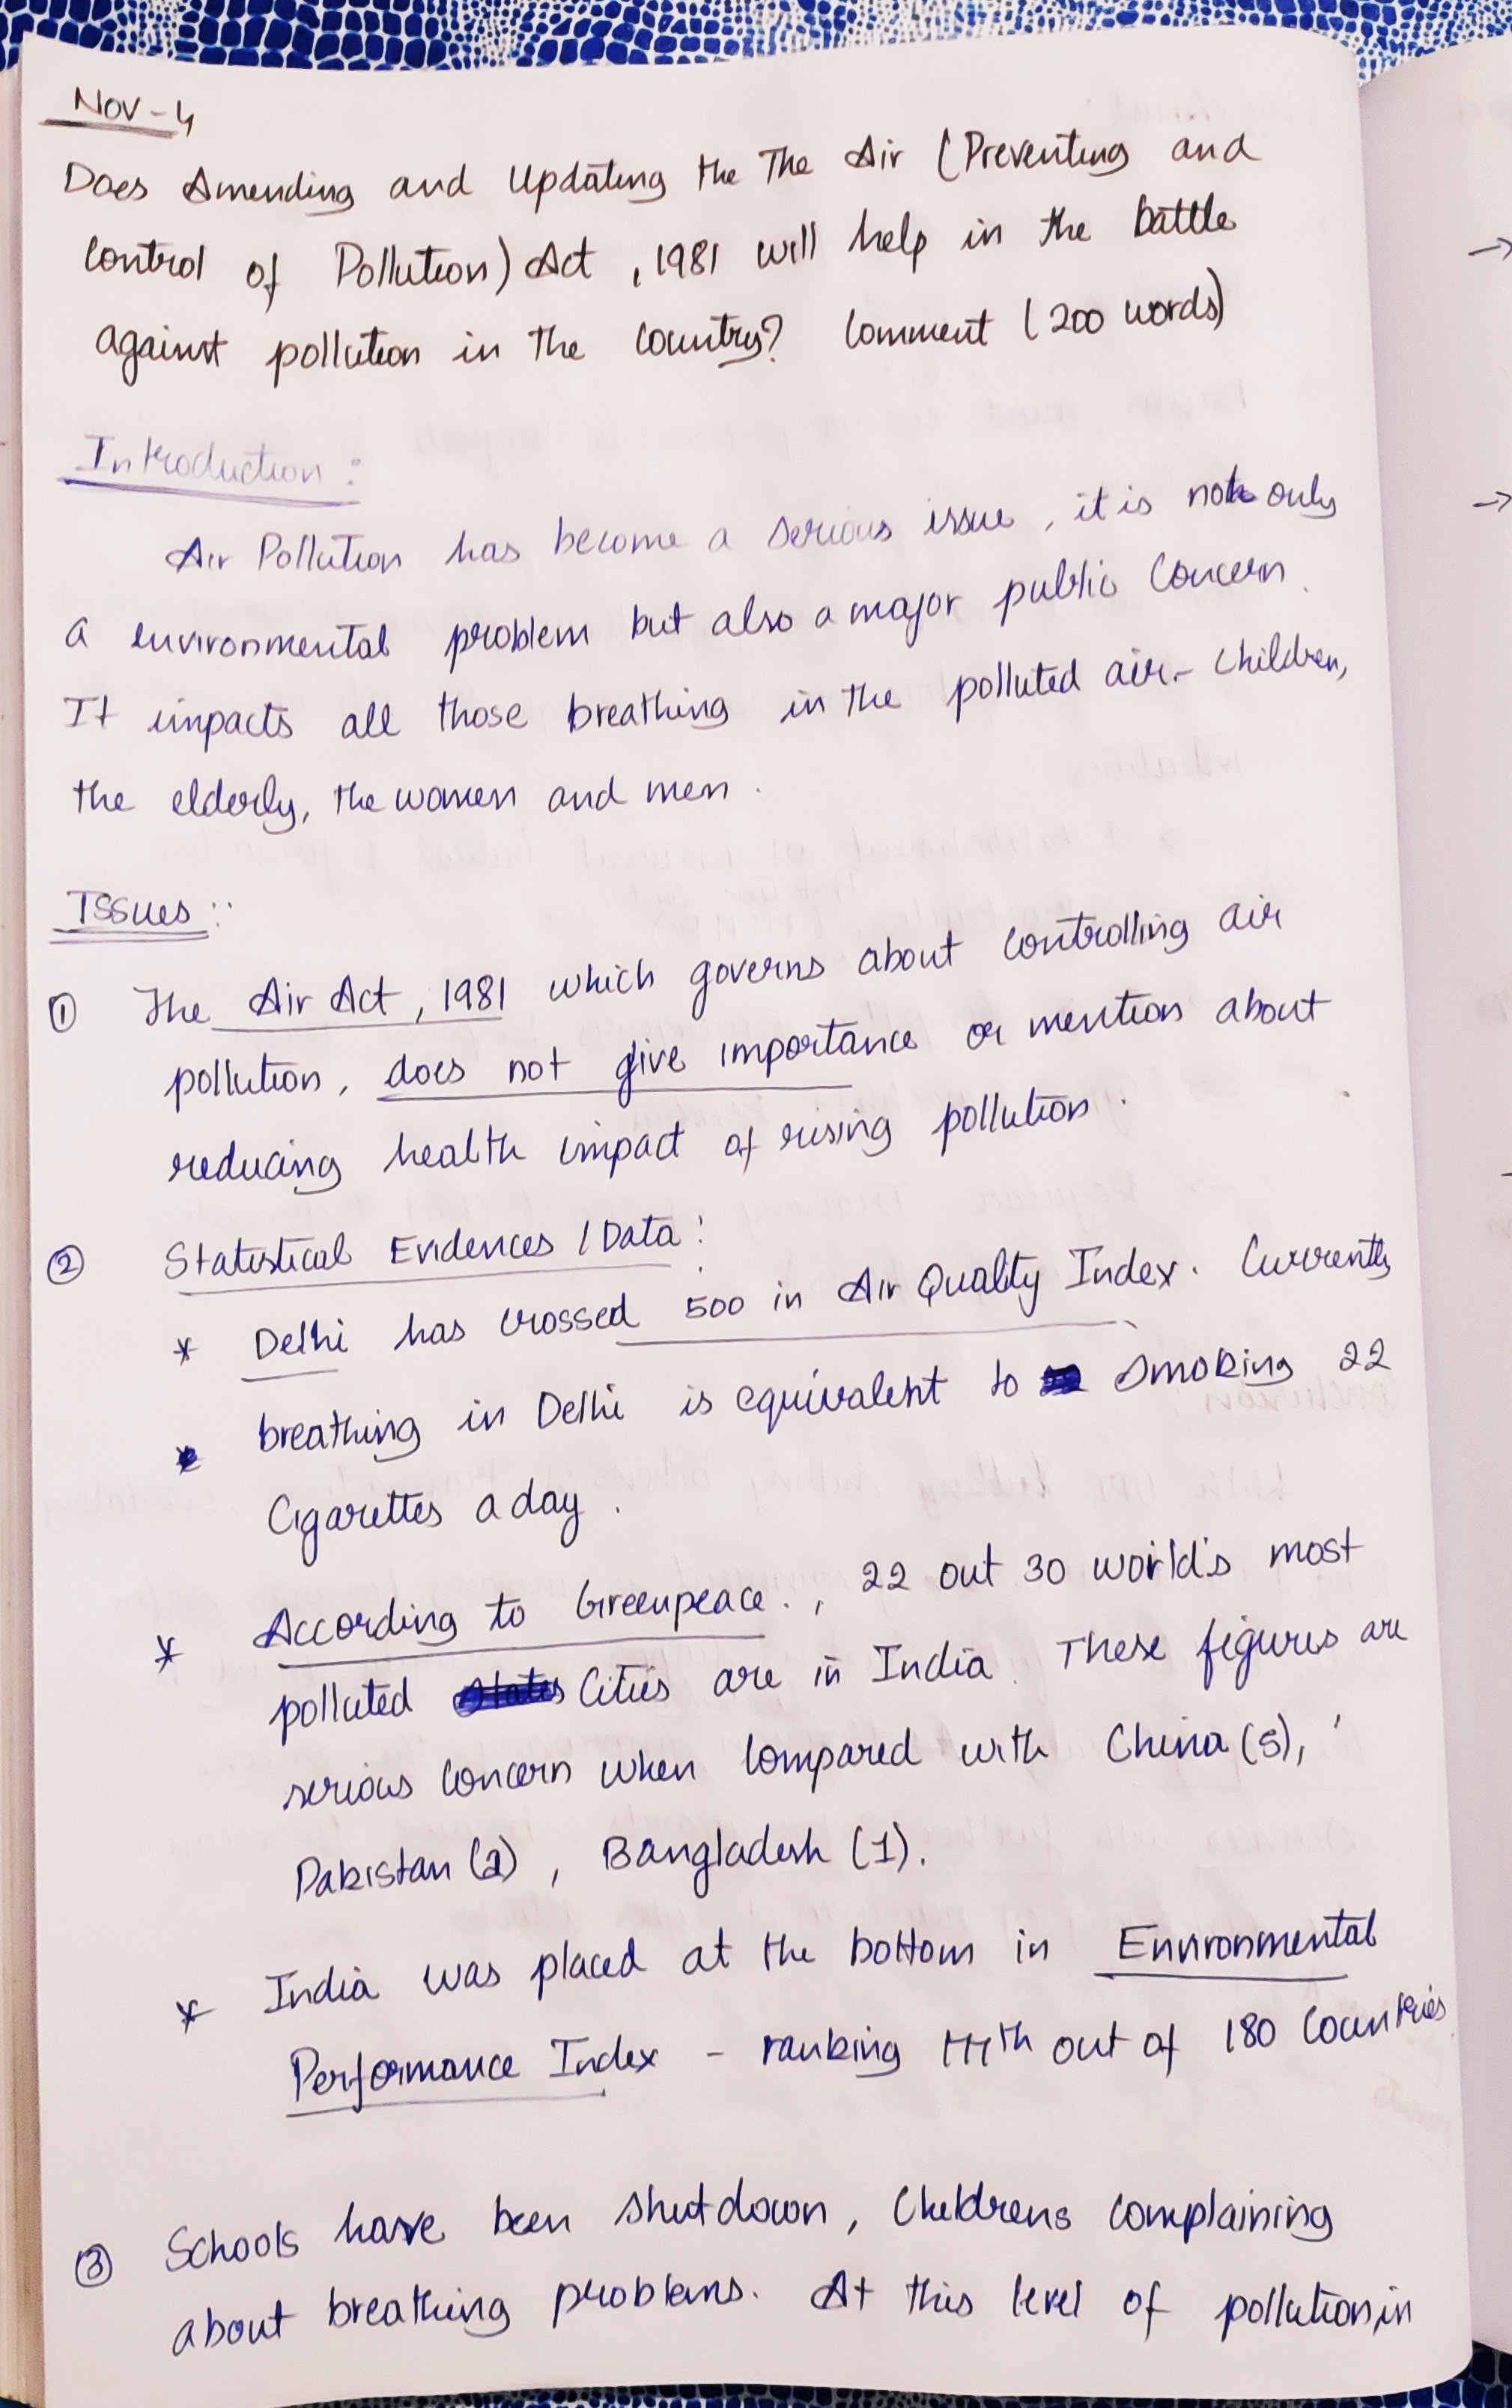 Nov-4
Does Amending and Updating the The Air (Preventing and
Control of Pollution) Act, 1981 will help in the battle
against pollution in the country? Comment (200 words)
Introduction:
Air Pollution has become a serious issue, it is not only
a environmental problem but also a major public concern.
It impacts all those breathing in the polluted air- children,
the elderly, the women and men.
Issues:
① The Air Act, 1981 which governs about controlling air
pollution, does not give importance or mention about
reducing health impact of rising pollution.
② Statistical Evidences / Data:
* Delhi has crossed 500 in Air Quality Index. Currently
breathing in Delhi is equivalent to smoking 22
Cigarettes a day.
* According to Greenpeace., 22 out 30 world's most
polluted Cities are in India. These figures are
serious concern when compared with China (5),
Pakistan (2), Bangladesh (1).
* India was placed at the bottom in Environmental
Performance Index - ranking 177th out of 180 Countries
③ Schools have been shutdown, Childrens complaining
about breathing problems. At this level of pollution, in